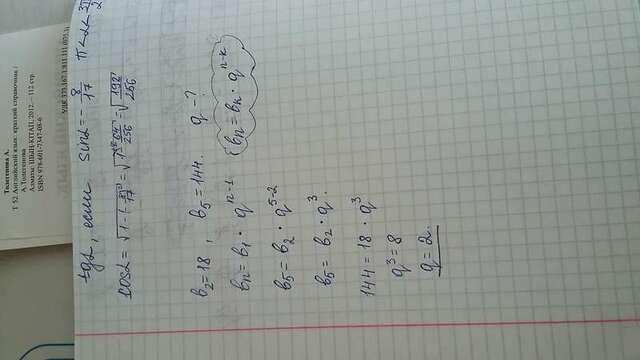 Толегенова А.
Т 52 Английский язык: краткий справочник /
А.Толегенова
Алматы: ШЫҢ-КІТАП, 2012. – 112 стр.
ISBN 978-601-7347-08-6
УДК 373.167.1:811.111 (075.3)
tgα, если sinα = -8/17 π<α<3π/2
cosα = √(1-(-8/17)²) = √(1-64/256) = √(192/256)
в₂=18, в₅=144. q-?
вn=в₁·q^(n-1) вn=вк·q^(n-к)
в₅=в₂·q^(5-2)
в₅=в₂·q³.
144=18·q³
q³=8
q=2.